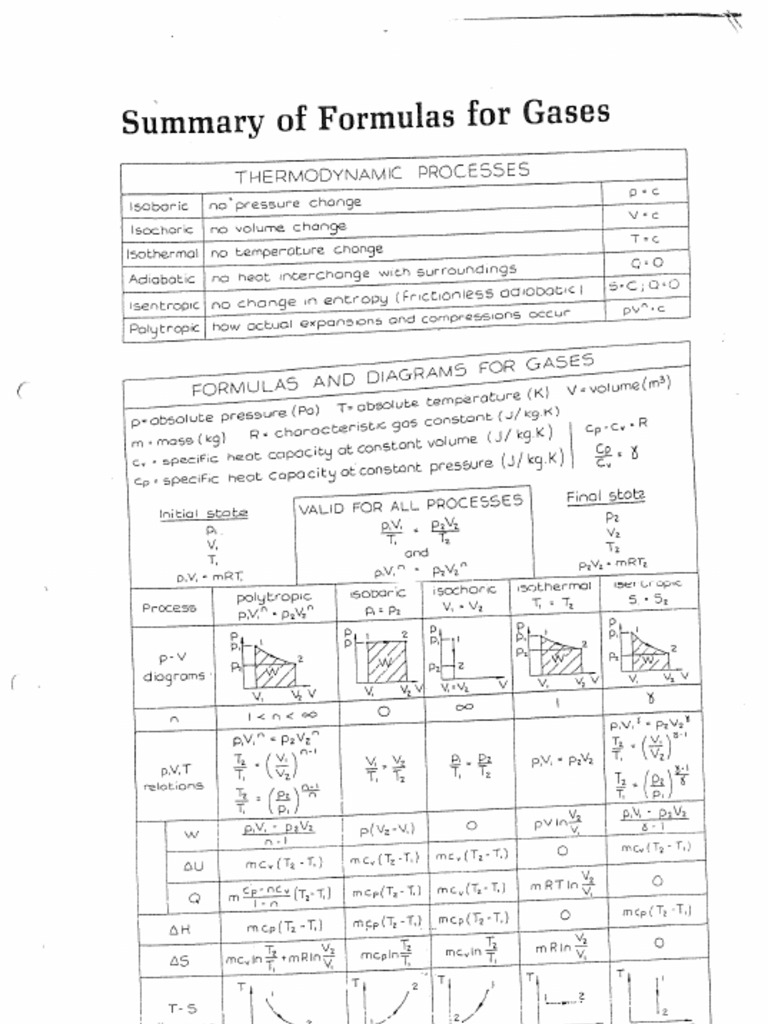 Summary of Formulas for Gases
THERMODYNAMIC PROCESSES
Isobaric no pressure change p = c
Isochoric no volume change V = c
Isothermal no temperature change T = c
Adiabatic no heat interchange with surroundings Q = O
Isentropic no change in entropy (frictionless adiabatic) S = C ; Q = O
Polytropic how actual expansions and compressions occur pVⁿ = c
FORMULAS AND DIAGRAMS FOR GASES
p = absolute pressure (Pa) T = absolute temperature (K) V = volume (m³)
m = mass (kg) R = characteristic gas constant (J/kg.K)
cᵥ = specific heat capacity at constant volume (J/kg.K) cₚ - cᵥ = R
cₚ = specific heat capacity at constant pressure (J/kg.K) cₚ/cᵥ = γ
Initial state VALID FOR ALL PROCESSES Final state
p₁ p₁V₁/T₁ = p₂V₂/T₂ p₂
V₁ and V₂
T₁ p₁V₁ⁿ = p₂V₂ⁿ T₂
p₁V₁ = mRT₁ p₂V₂ = mRT₂
Process polytropic isobaric isochoric isothermal isentropic
p₁V₁ⁿ = p₂V₂ⁿ p₁ = p₂ V₁ = V₂ T₁ = T₂ S₁ = S₂
p-V diagrams
p p₁ p₂ 1 2 W V₁ V₂ V
p p 1 2 W V₁ V₂ V
p p₁ p₂ 1 2 V₁=V₂ V
p p₁ p₂ 1 2 W V₁ V₂ V
p p₁ p₂ 1 2 W V₁ V₂ V
n 1 < n < ∞ O ∞ 1 γ
p,V,T relations
p₁V₁ⁿ = p₂V₂ⁿ
T₂/T₁ = (V₁/V₂)ⁿ⁻¹
T₂/T₁ = (p₂/p₁)^(n-1/n)
V₁/T₁ = V₂/T₂
p₁/T₁ = p₂/T₂
p₁V₁ = p₂V₂
p₁V₁^γ = p₂V₂^γ
T₂/T₁ = (V₁/V₂)^(γ-1)
T₂/T₁ = (p₂/p₁)^(γ-1/γ)
W p₁V₁ - p₂V₂/n - 1 p(V₂-V₁) O pV ln V₂/V₁ p₁V₁ - p₂V₂/γ - 1
ΔU mcᵥ(T₂-T₁) mcᵥ(T₂-T₁) mcᵥ(T₂-T₁) O mcᵥ(T₂-T₁)
Q m cₚ-ncᵥ/1-n (T₂-T₁) mcₚ(T₂-T₁) mcᵥ(T₂-T₁) mRT ln V₂/V₁ O
ΔH mcₚ(T₂-T₁) mcₚ(T₂-T₁) mcₚ(T₂-T₁) O mcₚ(T₂-T₁)
ΔS mcᵥ ln T₂/T₁ + mR ln V₂/V₁ mcₚ ln T₂/T₁ mcᵥ ln T₂/T₁ mR ln V₂/V₁ O
T-S T 1 T 2 T 2 T 1 2 T 1 2